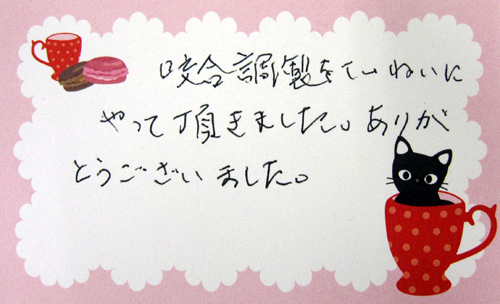 咬合調製をていねいに
やって頂きました。ありが
とうございました。